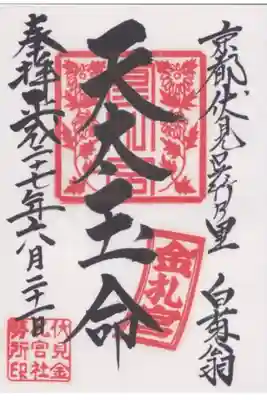 京都伏見久米乃里 白菊翁
天太玉命
奉拝 平成二十七年六月二十一日
金札宮
伏見金
札宮社
務所印